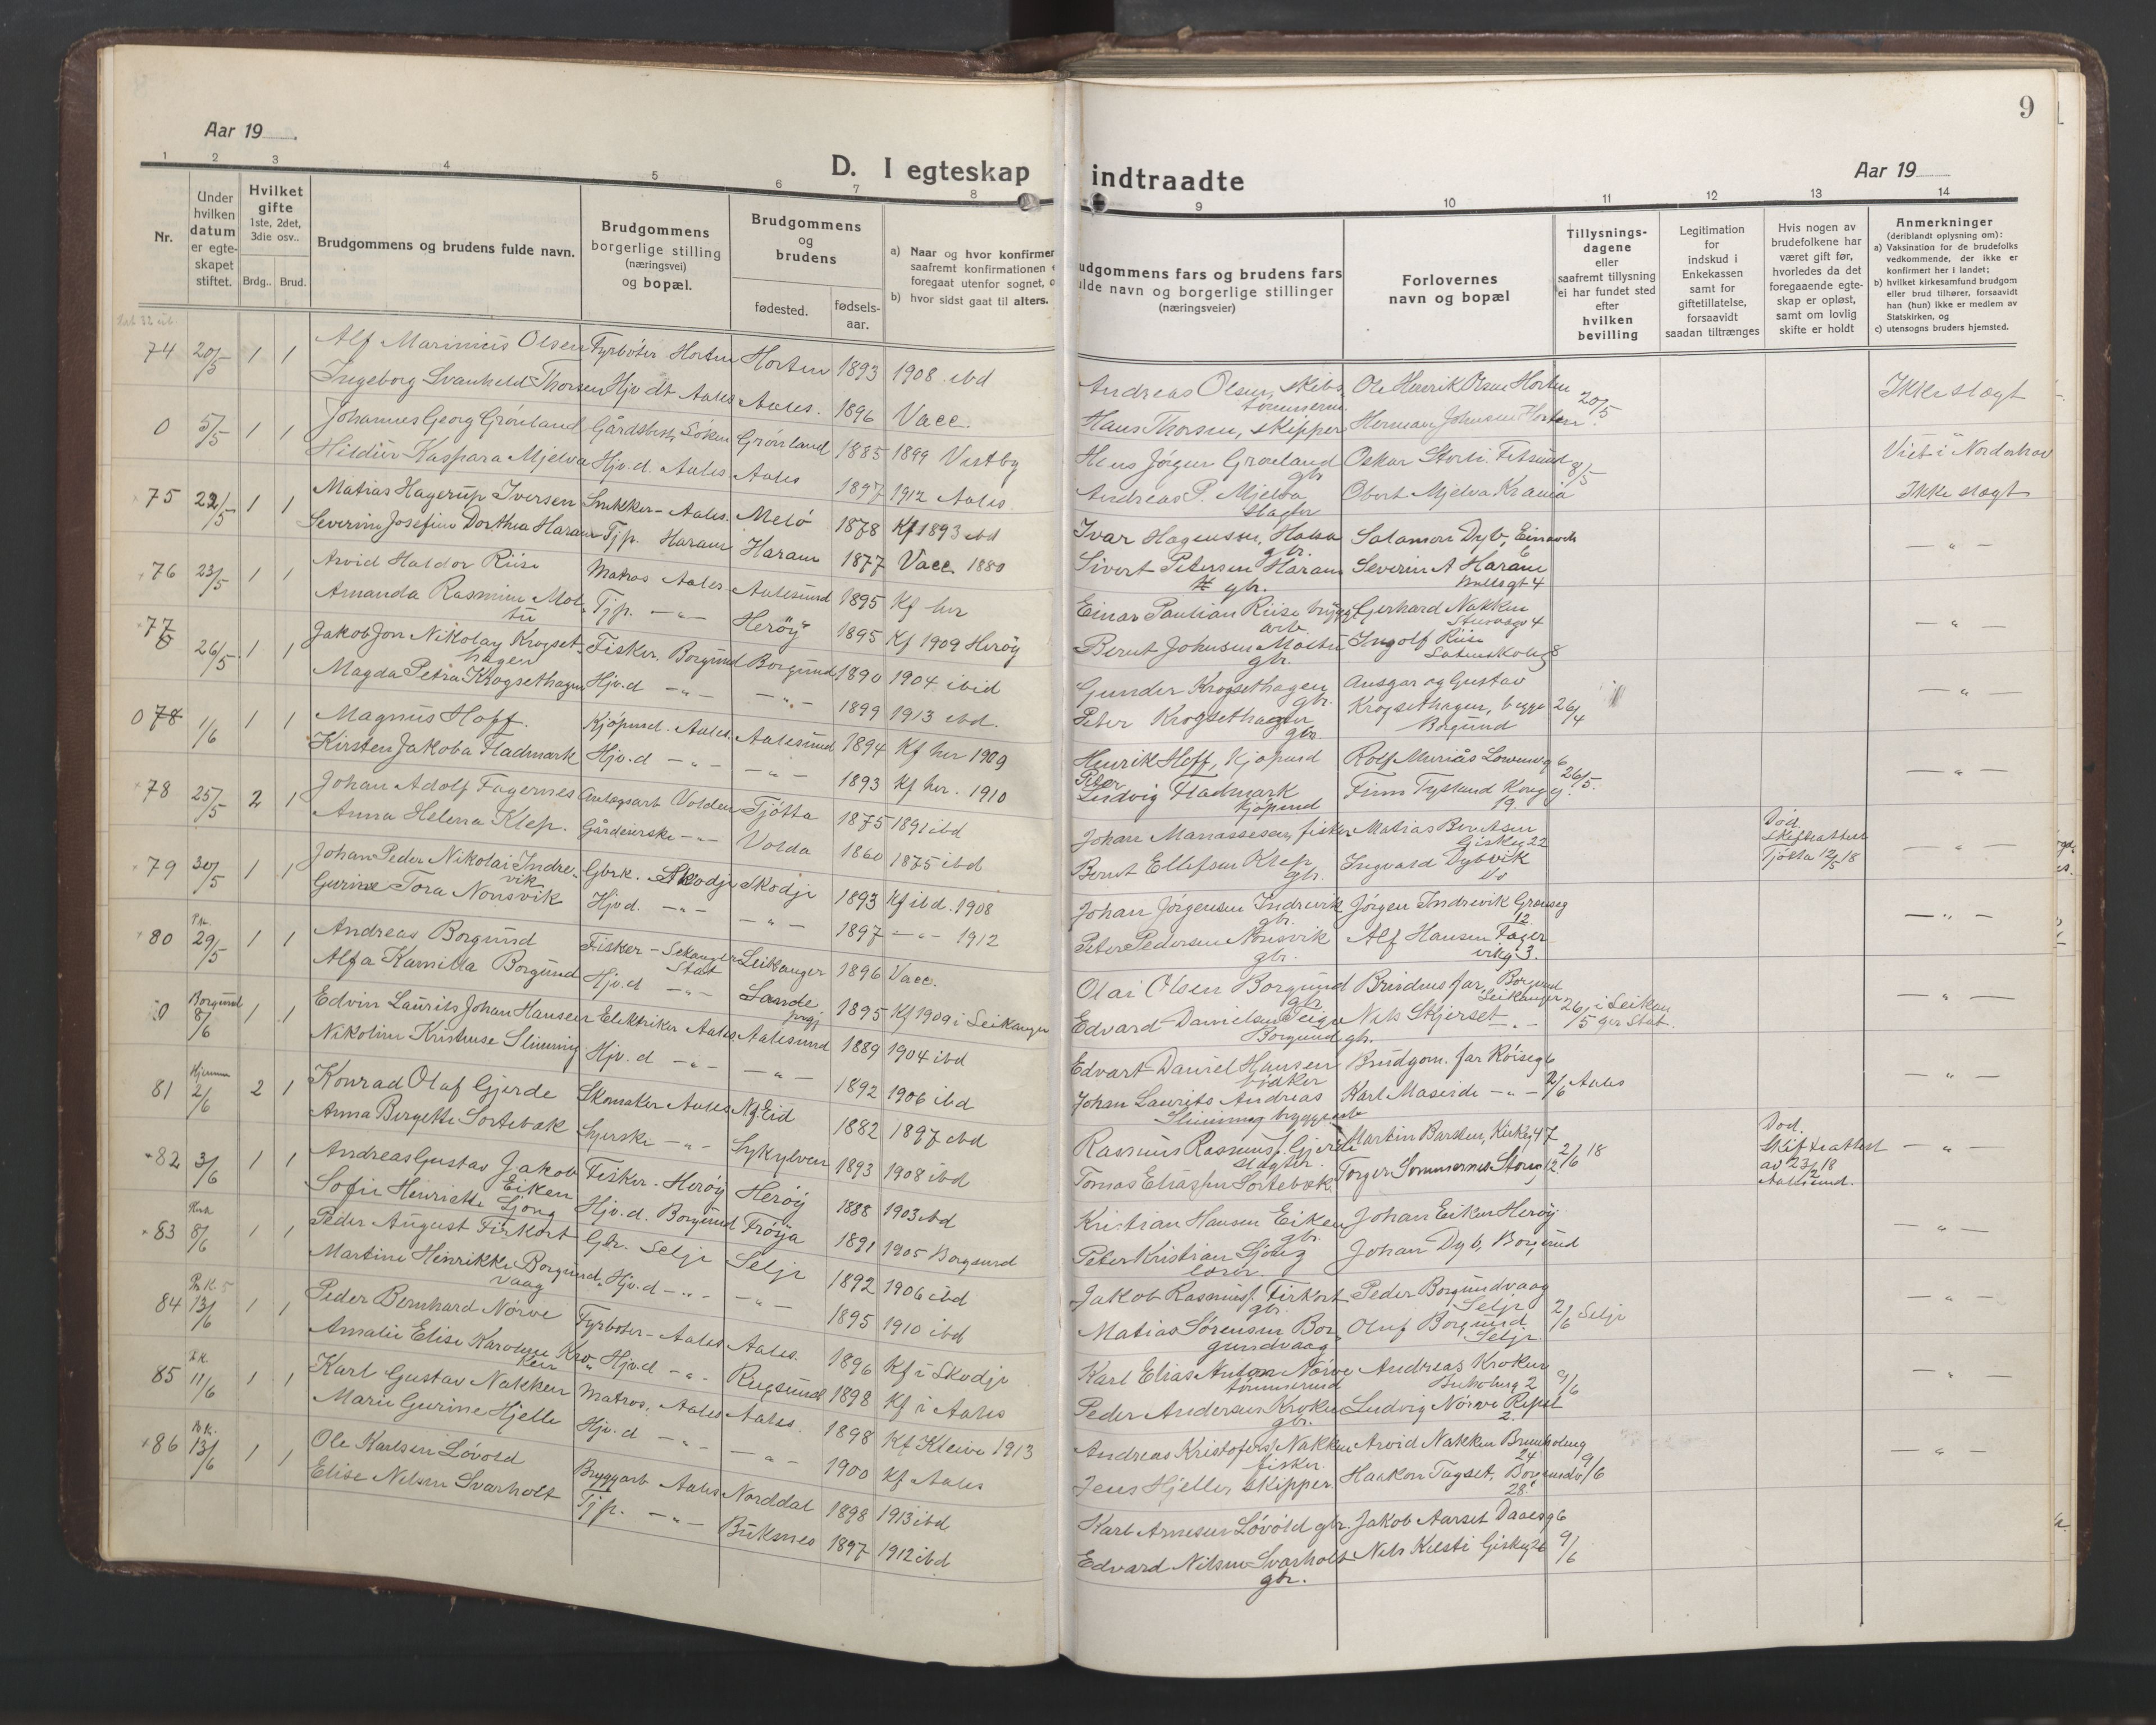 9
Aar 19
D. I egteskap indtraadte
Aar 19
1 2 3 4 5 6 7 8 9 10 11 12 13 14
Nr.
Under
hvilken
datum
er egte-
skapet
stiftet.
Hvilket
gifte
1ste, 2det,
3die osv..
Brdg..
Brud.
Brudgommens og brudens fulde navn.
Brudgommens
borgerlige stilling
(næringsvei)
og bopæl.
Brudgommens
og
brudens
fødested.
fødsels-
aar.
a) Naar og hvor konfirmer
saafremt konfirmationen
foregaat utenfor sognet, o
b) hvor sidst gaat til alters.
udgommens fars og brudens fars
ulde navn og borgerlige stillinger
(næringsveier)
Forlovernes
navn og bopæl
Tillysnings-
dagene
eller
saafremt tillysning
ei har fundet sted
efter
hvilken
bevilling
Legitimation
for
indskud i
Enkekassen
samt for
giftetillatelse,
forsaavidt
saadan tiltrænges
Hvis nogen av
brudefolkene har
været gift før,
hvorledes da det
foregaaende egte-
skap er opløst,
samt om lovlig
skifte er holdt
Anmerkninger
(deriblandt oplysning om):
a) Vaksination for de brudefolks
vedkommende, der ikke er
konfirmert her i landet;
b) hvilket kirkesamfund brudgom
eller brud tilhører, forsaavidt
han (hun) ikke er medlem av
Statskirken, og
c) utensogns bruders hjemsted.
74 20/5 1 1 Alf Marinius Olsen Fyrbøter Horten Horten 1893 1908 ibd
Andreas Olsen, skibs Ole Henrik Olsen Horten 20/5 Ikke slegt
tømmerm.
Ingeborg Svanhild Thorsen Hjv dt Aales Aales. 1896 Vacc.
Hans Thorsen, skipper Herman Johnsen Horten
0 5/5 1 1 Johannes Georg Grønland Gårdsbest. Søken Grønland 1885 1899 Vestby
Hans Jørgen Grønland Oskar Storli. Fetsund 8/5 Viet i Norderhov
gbr
Hildur Kaspara Mjelva Hjv.d. Aales Aales 1897 1912 Aales
Andreas P. Mjelva Obert Mjelva Krania Ikke slegt
slagter
75 22/5 1 1 Matias Hagerup Iversen Snikker - Aales. Melø 1878 Kf 1893 ibd
Ivar Hagensen, Halsa Salamon Dyb,
gbr. 6
Severine Josefine Dorthea Haram Tjp. Haram Haram 1877 Vacc. 1880
Sivert Petersen Haram Severin A Haram
gbr.
76 23/5 1 1 Arvid Haldor Riise Matros Aales Aalesund 1895 Kf her
Einar Paulian Riise brygge Gerhard Nakken
arb.
Amanda Rasmine Mol-
tu Tjp. - " - Herøy 1895 Kf 1909 Herøy
Bernt Johnsen Moltu Ingolf Riise
gbr.
77 26/5 1 1 Jakob Jon Nikolay Krogset-
hagen Fisker. Borgund Borgund 1890 1904 ibid
Gunder Krogsethagen Ansgar og Gustav
gbr.
Magda Petra Krogsethagen Hjv.d - " - - " - 1899 1913 ibd.
Peter Krogsethagen Krogsethagen, begge 26/4
gbr. Borgund
0 78 1/6 1 1 Magnus Hoff. Kjøpmd. Aales. Aalesund 1894 Kf her 1909
Henrik Hoff, Kjøpmd Rolf
Kirsten Jakoba Fladmark Hjv.d - " - - " - 1893 Kf her. 1910
Peter
Ludvig Fladmark Finn 26/5.
Kjøpmd 19
78 25/5 2 1 Johan Adolf Fagernes Anlægsarb Volden Tjøtta 1875 1891 ibd
Johan Manassesen, fisker Matias Berntsen Død.
Giskeg 22 Skifteattest
Anna Helena Klep. Gårdeierske - " - Volda 1860 1875 ibd
Bernt Ellefsen Klep Ingvald Dybvik Tjøtta 12/5 18
gbr.
79 30/5 1 1 Johan Peder Nikolai Indre-
vik Gbrk. Skodje Skodje 1893 Kf ibd. 1908
Johan Jørgensen Indrevik Jørgen Indrevik
gbr. 12
Gurine Tora Nonsvik Hjv.d. - " - - " - 1897 - " - 1912
Peter Pedersen Nonsvik Alf Hansen Fager-
gbr. vikg 3.
80 29/5 1 1 Andreas Borgund Fisker - Leikanger 1896 Vacc.
Stat
Olai Olsen Borgund Brudens far, Borgund
gbr Leikanger
Alfa Kamilla Borgund Hjv.d - " - Sande 1895 Kf 1909 i Leikanger
prgj
Edvard Danielsen Teige Nils Skjerset - " - 26/5 i Leikan
Borgund gbr. ger Stat.
0 Borgund 8/6 1 1 Edvin Laurits Johan Hansen Elektriker Aales Aalesund 1889 1904 ibd
Edvart Daniel Hansen Brudgom. far Røiseg 6
bødker
Nikoline Kristiuse Slinning Hjv.d - " - - " - 1892 1906 ibd
Johan Laurits Andreas Karl Maseide - " - 2/6 Aales
Slinning
81 Hjemme 2/6 2 1 Konrad Olaf Gjerde Skomaker Aales N.f.Eid 1882 1897 ibd
Rasmus Rasmusf. Gjerde Martin Barsten, Kirkeg 47 2/6 18 Død.
slagter. Skifteattest
Anna Bergette Sortebak Syerske - " - Sykylven 1893 1908 ibd
Tomas Eliassen Sortebæk. Torger av 23/2 18
Aalesund.
82 3/6 1 1 Andreas Gustav Jakob
Eiken Fisker - Herøy Herøy 1888 1903 ibd
Kristian Hansen Eiken Johan Eiken Herøy
gbr.
Sofie Henriette
Sjong Hjv.d. Borgund Frøya 1891 1905 Borgund
Peter Kristian Sjong Johan Dyb, Borgund
83 8/6 1 1 Peder August Firkort Gbr. Selje Selje 1892 1906 ibd
Jakob Rasmusf. Firkort Peder Borgundvaag
gbr. Selje 2/6 Selje
Martine Henrikke Borgund
vaag Hjv.d - " - - " - 1895 1910 ibd
Matias Sørensen Bor Oluf Borgund
gundvaag Selje.
84 13/6 1 1 Peder Bernhard Nørve Fyrbøter - Aales Aales. 1896 Kf i Skodje
Karl Elias Anton Nørve Andreas Kroken 9/6
tømmermd 2
Amalie Elise Karoline Kro
ken Hjv.d - " - Rugsund 1898 Kf i Aales
Peder Andersen Kroken Ludvig Nørve
gbr. 2.
85 11/6 1 1 Karl Gustav Nakken Matros. Aales Aales. 1898 Kf Kleive 1913
Andreas Kristofersf Nakken Arvid Nakken
fisker. 24 9/6
Marie Gurine Hjelle Hjv.d - " - - " - 1900 Kf Aales
Jens Hjelle, skipper. Haakon
28.
86 13/6 1 1 Ole Karlsen Løvold Bryggarb Aales Norddal 1898 1913 ibd
Karl Arnesen Løvold gbr. Jakob Aarset Daaesg 6
Elise Nilsen Svarholt Tjp. - " - Buksnes 1897 1912 ibd
Edvard Nilsen Svarholt Nils Giskeg 26 9/6
gbr.